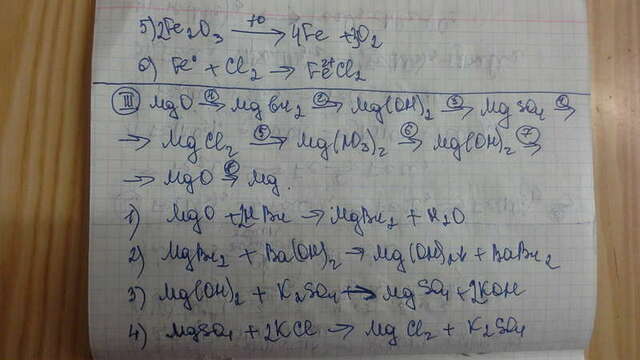 5) 2Fe₂O₃ —t°→ 4Fe + 3O₂
6) Fe⁰ + Cl₂ → Fe²⁺Cl₂
III MgO —1→ MgBr₂ —2→ Mg(OH)₂ —3→ MgSO₄ —4→
→ MgCl₂ —5→ Mg(NO₃)₂ —6→ Mg(OH)₂ —7→
→ MgO —8→ Mg.
1) MgO + 2HBr → MgBr₂ + H₂O
2) MgBr₂ + Ba(OH)₂ → Mg(OH)₂↓ + BaBr₂
3) Mg(OH)₂ + K₂SO₄ → MgSO₄ + 2KOH
4) MgSO₄ + 2KCl → MgCl₂ + K₂SO₄